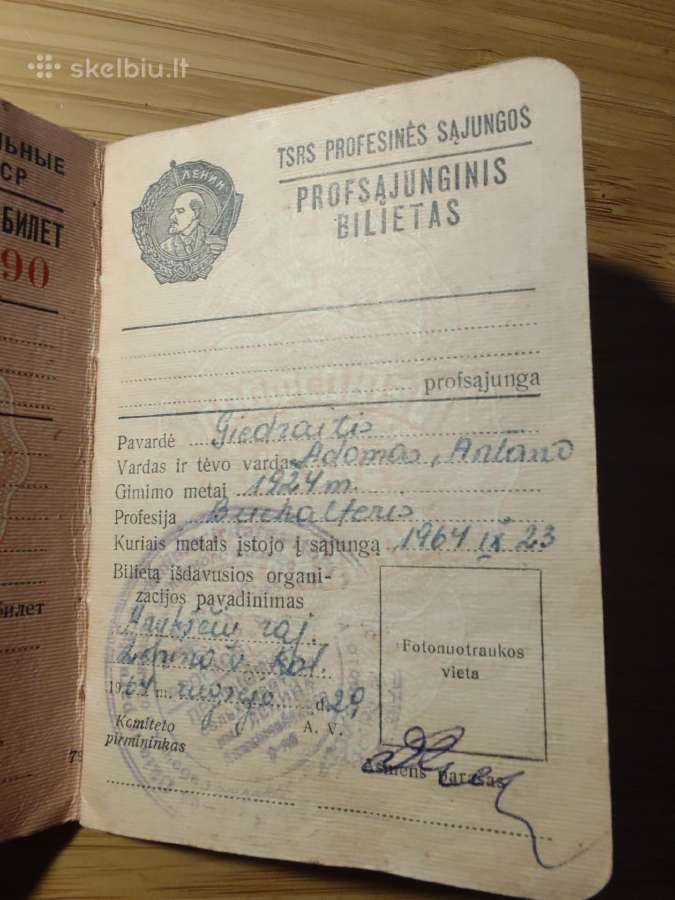 skelbiu.lt
ЛЬНЫЕ
СР
БИЛЕТ
90
билет
ЛЕНИН
TSRS PROFESINĖS SĄJUNGOS
PROFSĄJUNGINIS
BILIETAS
profsąjunga
Pavardė Giedraitis
Vardas ir tėvo vardas Adomas, Antano
Gimimo metai 1924 m.
Profesija Buchalteris
Kuriais metais įstojo į sąjungą 1964 IX 23
Bilietą išdavusios organi-
zacijos pavadinimas
raj.
Lenino v. kol.
1964 m. d. 29
Komiteto
pirmininkas
A. V.
Fotonuotraukos
vieta
Asmens parašas